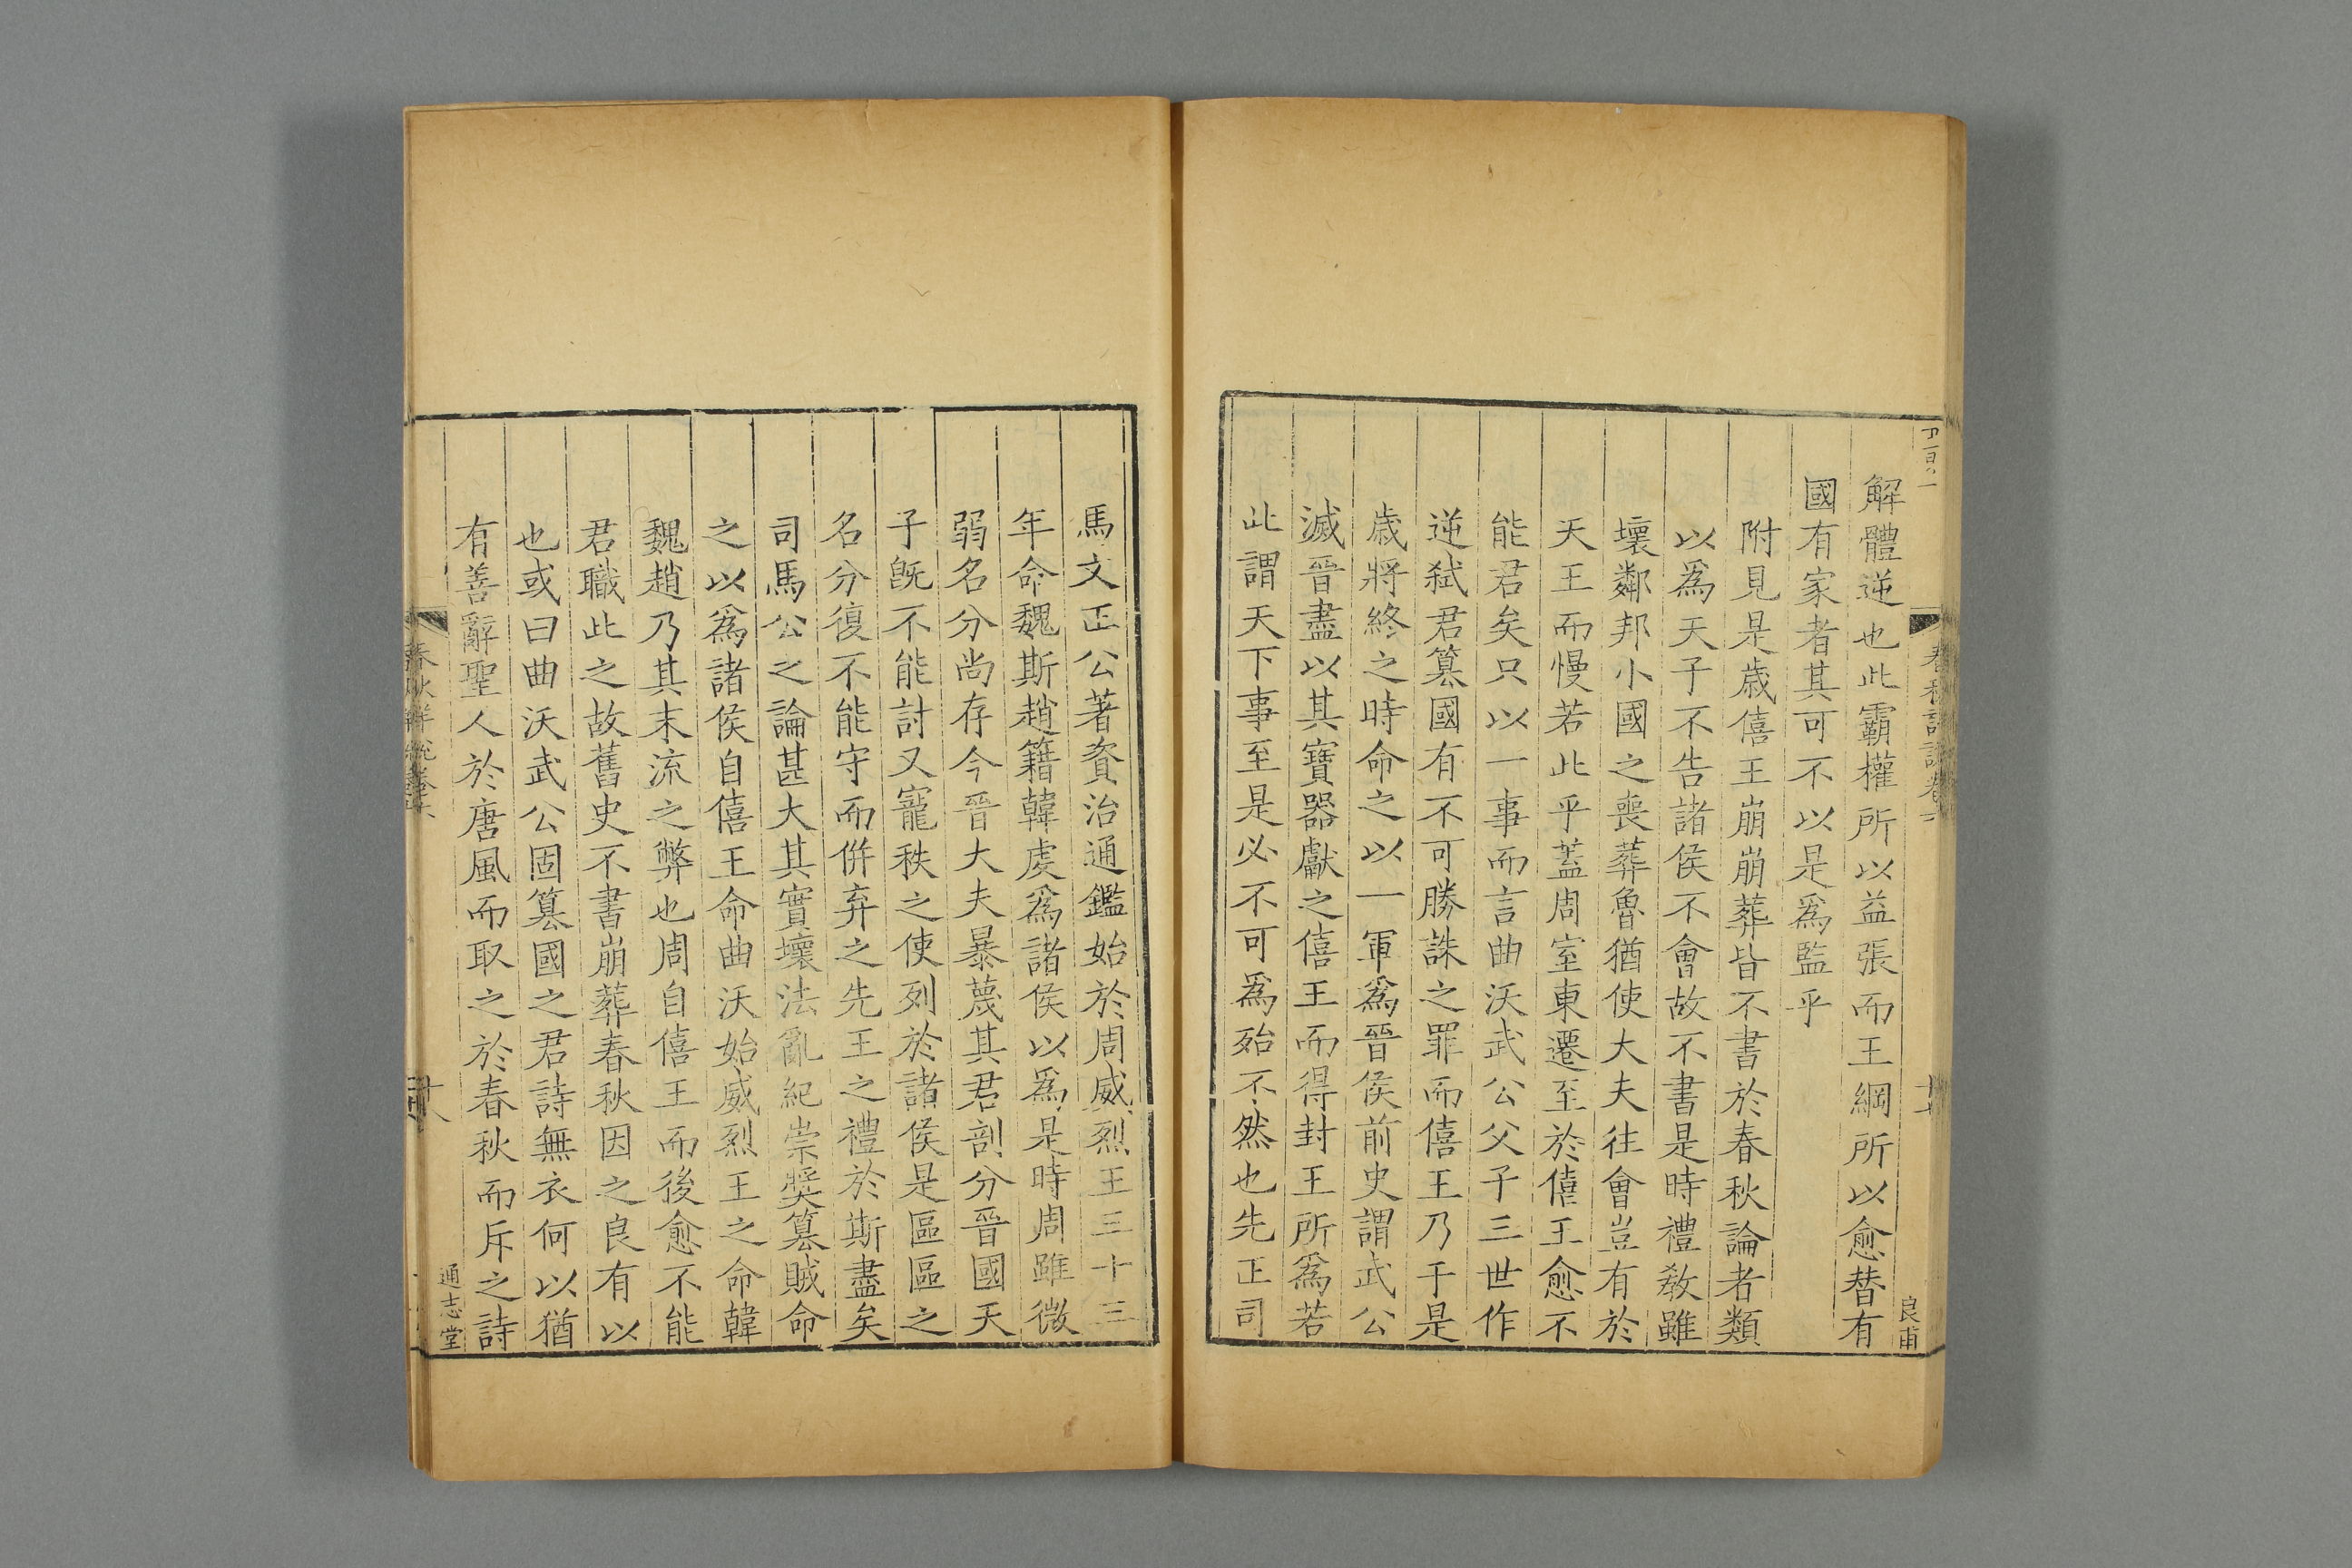 解體逆也此霸權所以益張而王綱所以愈替有
國有家者其可不以是爲監乎
附見是歲僖王崩崩葬皆不書於春秋論者類
以爲天子不告諸侯不會故不書是時禮教雖
壞鄰邦小國之喪葬魯猶使大夫往會豈有於
天王而慢若此乎蓋周室東遷至於僖王愈不
能君矣只以一事而言曲沃武公父子三世作
逆弑君簒國有不可勝誅之罪而僖王乃于是
歲將終之時命之以一軍爲晉侯前史謂武公
滅晉盡以其寶器獻之僖王而得封王所爲若
此謂天下事至是必不可爲殆不然也先正司
良甫
馬文正公著資治通鑑始於周威烈王三十三
年命魏斯趙籍韓虔爲諸侯以爲是時周雖微
弱名分尚存今晉大夫暴蔑其君剖分晉國天
子旣不能討又寵秩之使列於諸侯是區區之
名分復不能守而併弃之先王之禮於斯盡矣
司馬公之論甚大其實壞法亂紀崇奬簒賊命
之以爲諸侯自僖王命曲沃始威烈王之命韓
魏趙乃其末流之弊也周自僖王而後愈不能
君職此之故舊史不書崩葬春秋因之良有以
也或曰曲沃武公固簒國之君詩無衣何以猶
有善辭聖人於唐風而取之於春秋而斥之詩
通志堂